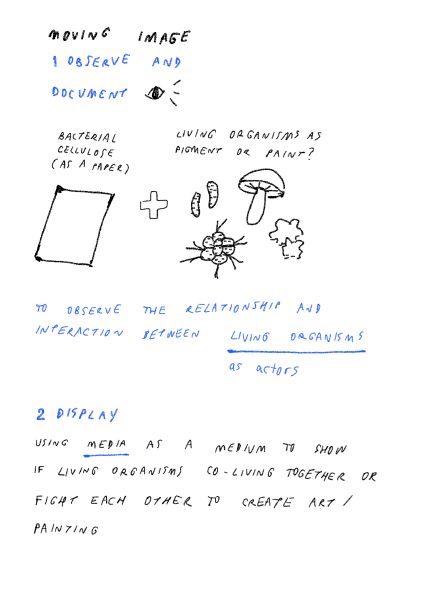 MOVING IMAGE
1 OBSERVE AND
DOCUMENT
BACTERIAL
CELLULOSE
(AS A PAPER)
LIVING ORGANISMS AS
PIGMENT OR PAINT?
TO OBSERVE THE RELATIONSHIP AND
INTERACTION BETWEEN LIVING ORGANISMS
as actors
2 DISPLAY
USING MEDIA AS A MEDIUM TO SHOW
IF LIVING ORGANISMS CO-LIVING TOGETHER OR
FIGHT EACH OTHER TO CREATE ART /
PAINTING